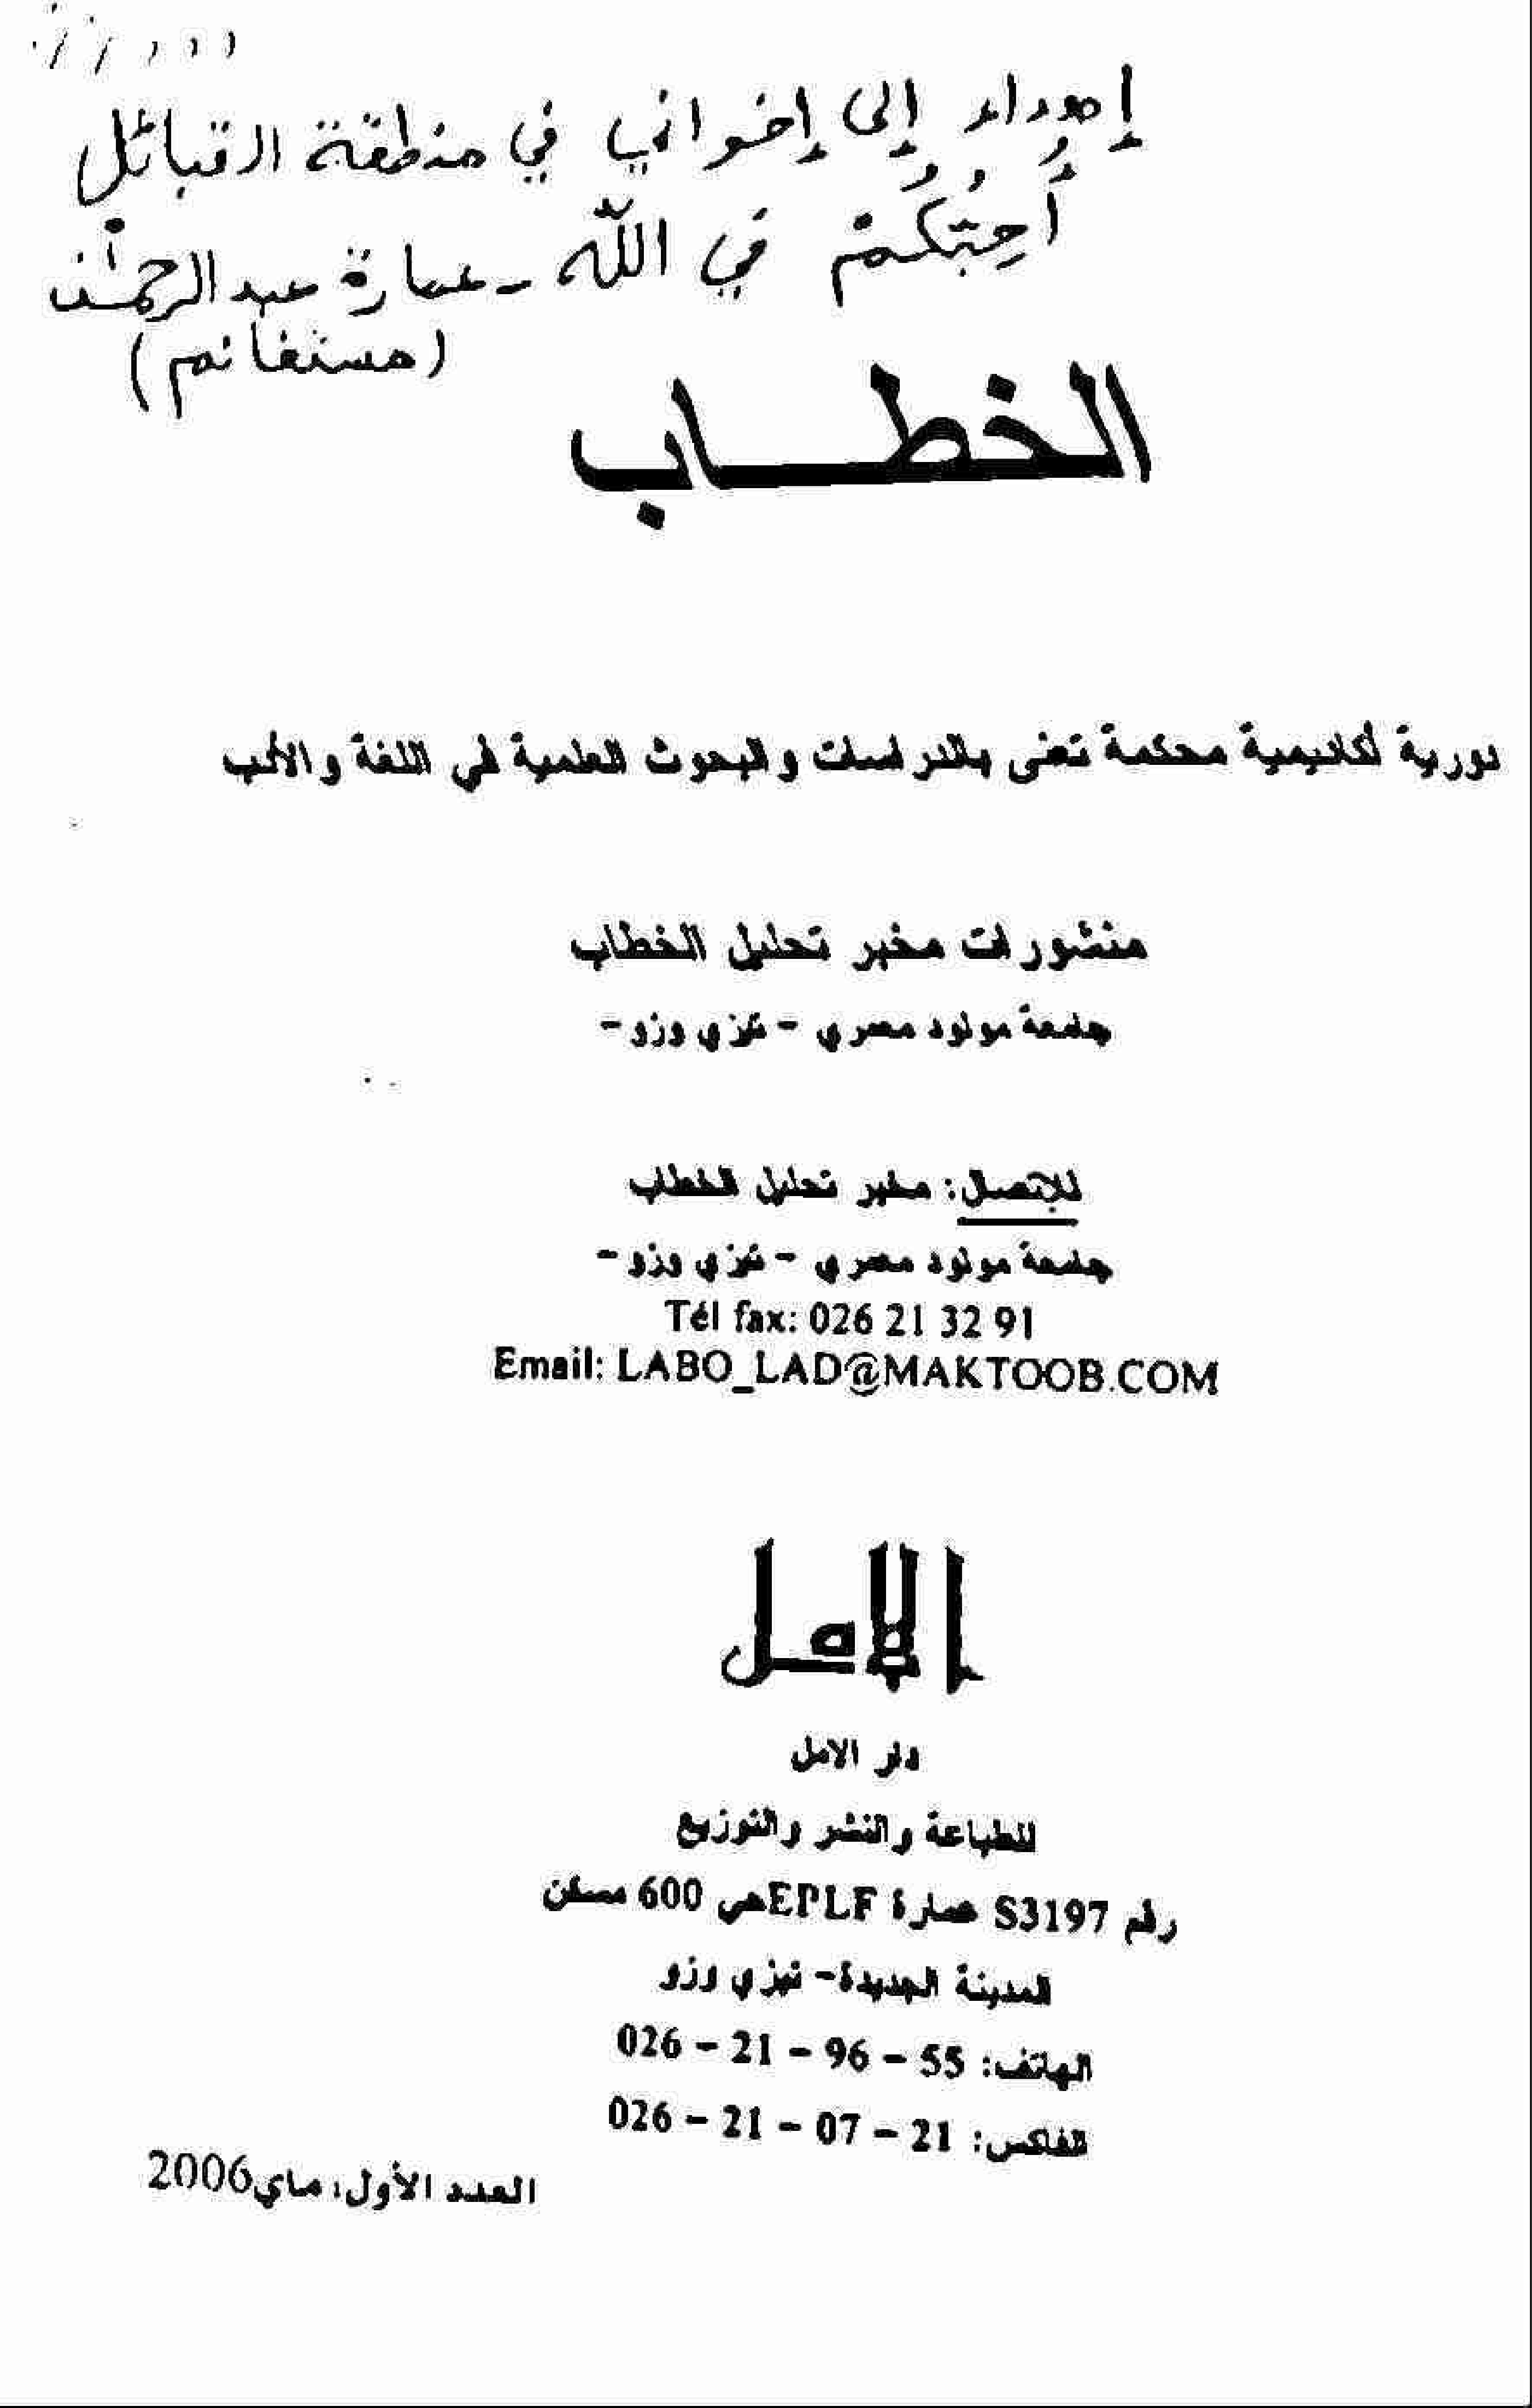 إهداء إلى إخواني في منطقة القبائل
أُحِبُّكُمْ في اللّه - عمارة عبد الرحمٰن
(مستغانم)
الخطاب
دورية أكاديمية محكمة تعنى بالدراسات والبحوث العلمية في اللغة والأدب
منشورات مخبر تحليل الخطاب
جامعة مولود معمري - تيزي وزو -
للإتصال: مخبر تحليل الخطاب
جامعة مولود معمري - تيزي وزو -
Tél fax: 026 21 32 91
Email: LABO_LAD@MAKTOOB.COM
الأمل
دار الامل
للطباعة والنشر والتوزيع
رقم S3197 عمارة EPLFحي 600 مسكن
المدينة الجديدة- تيزي وزو
الهاتف: 55 – 96 – 21 – 026
الفاكس: 21 – 07 – 21 – 026
العدد الأول، ماي2006